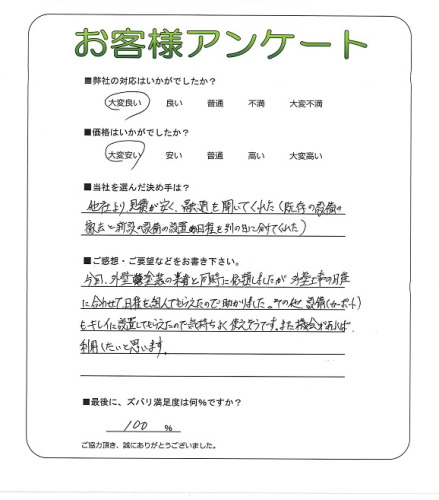 お客様アンケート
■弊社の対応はいかがでしたか？
大変良い 良い 普通 不満 大変不満
■価格はいかがでしたか？
大変安い 安い 普通 高い 大変高い
■当社を選んだ決め手は？
他社より見積が安く、融通を聞いてくれた（既存の設備の
撤去と新設の設備の設置日程を別の日に分けてくれた）
■ご感想・ご要望などをお書き下さい。
今回、外壁塗装の業者と同時に依頼しましたが 外壁工事の日程
に合わせて日程を組んでもらえたので助かりました。その他 設備（カーポート）
もキレイに設置してもらえたので気持ちよく使えそうです。また機会があれば、
利用したいと思います。
■最後に、ズバリ満足度は何％ですか？
100 ％
ご協力頂き、誠にありがとうございました。